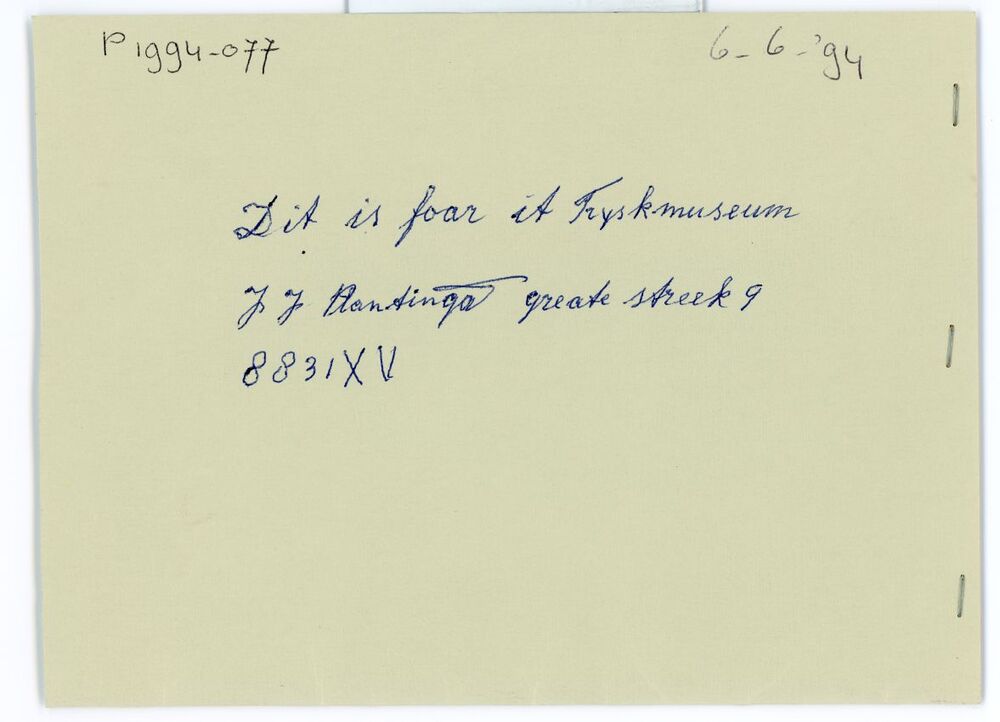 P 1994-077
6-6-'94
Dit is foar it Fryskmuseum
J J Plantinga greate streek 9
8831XV